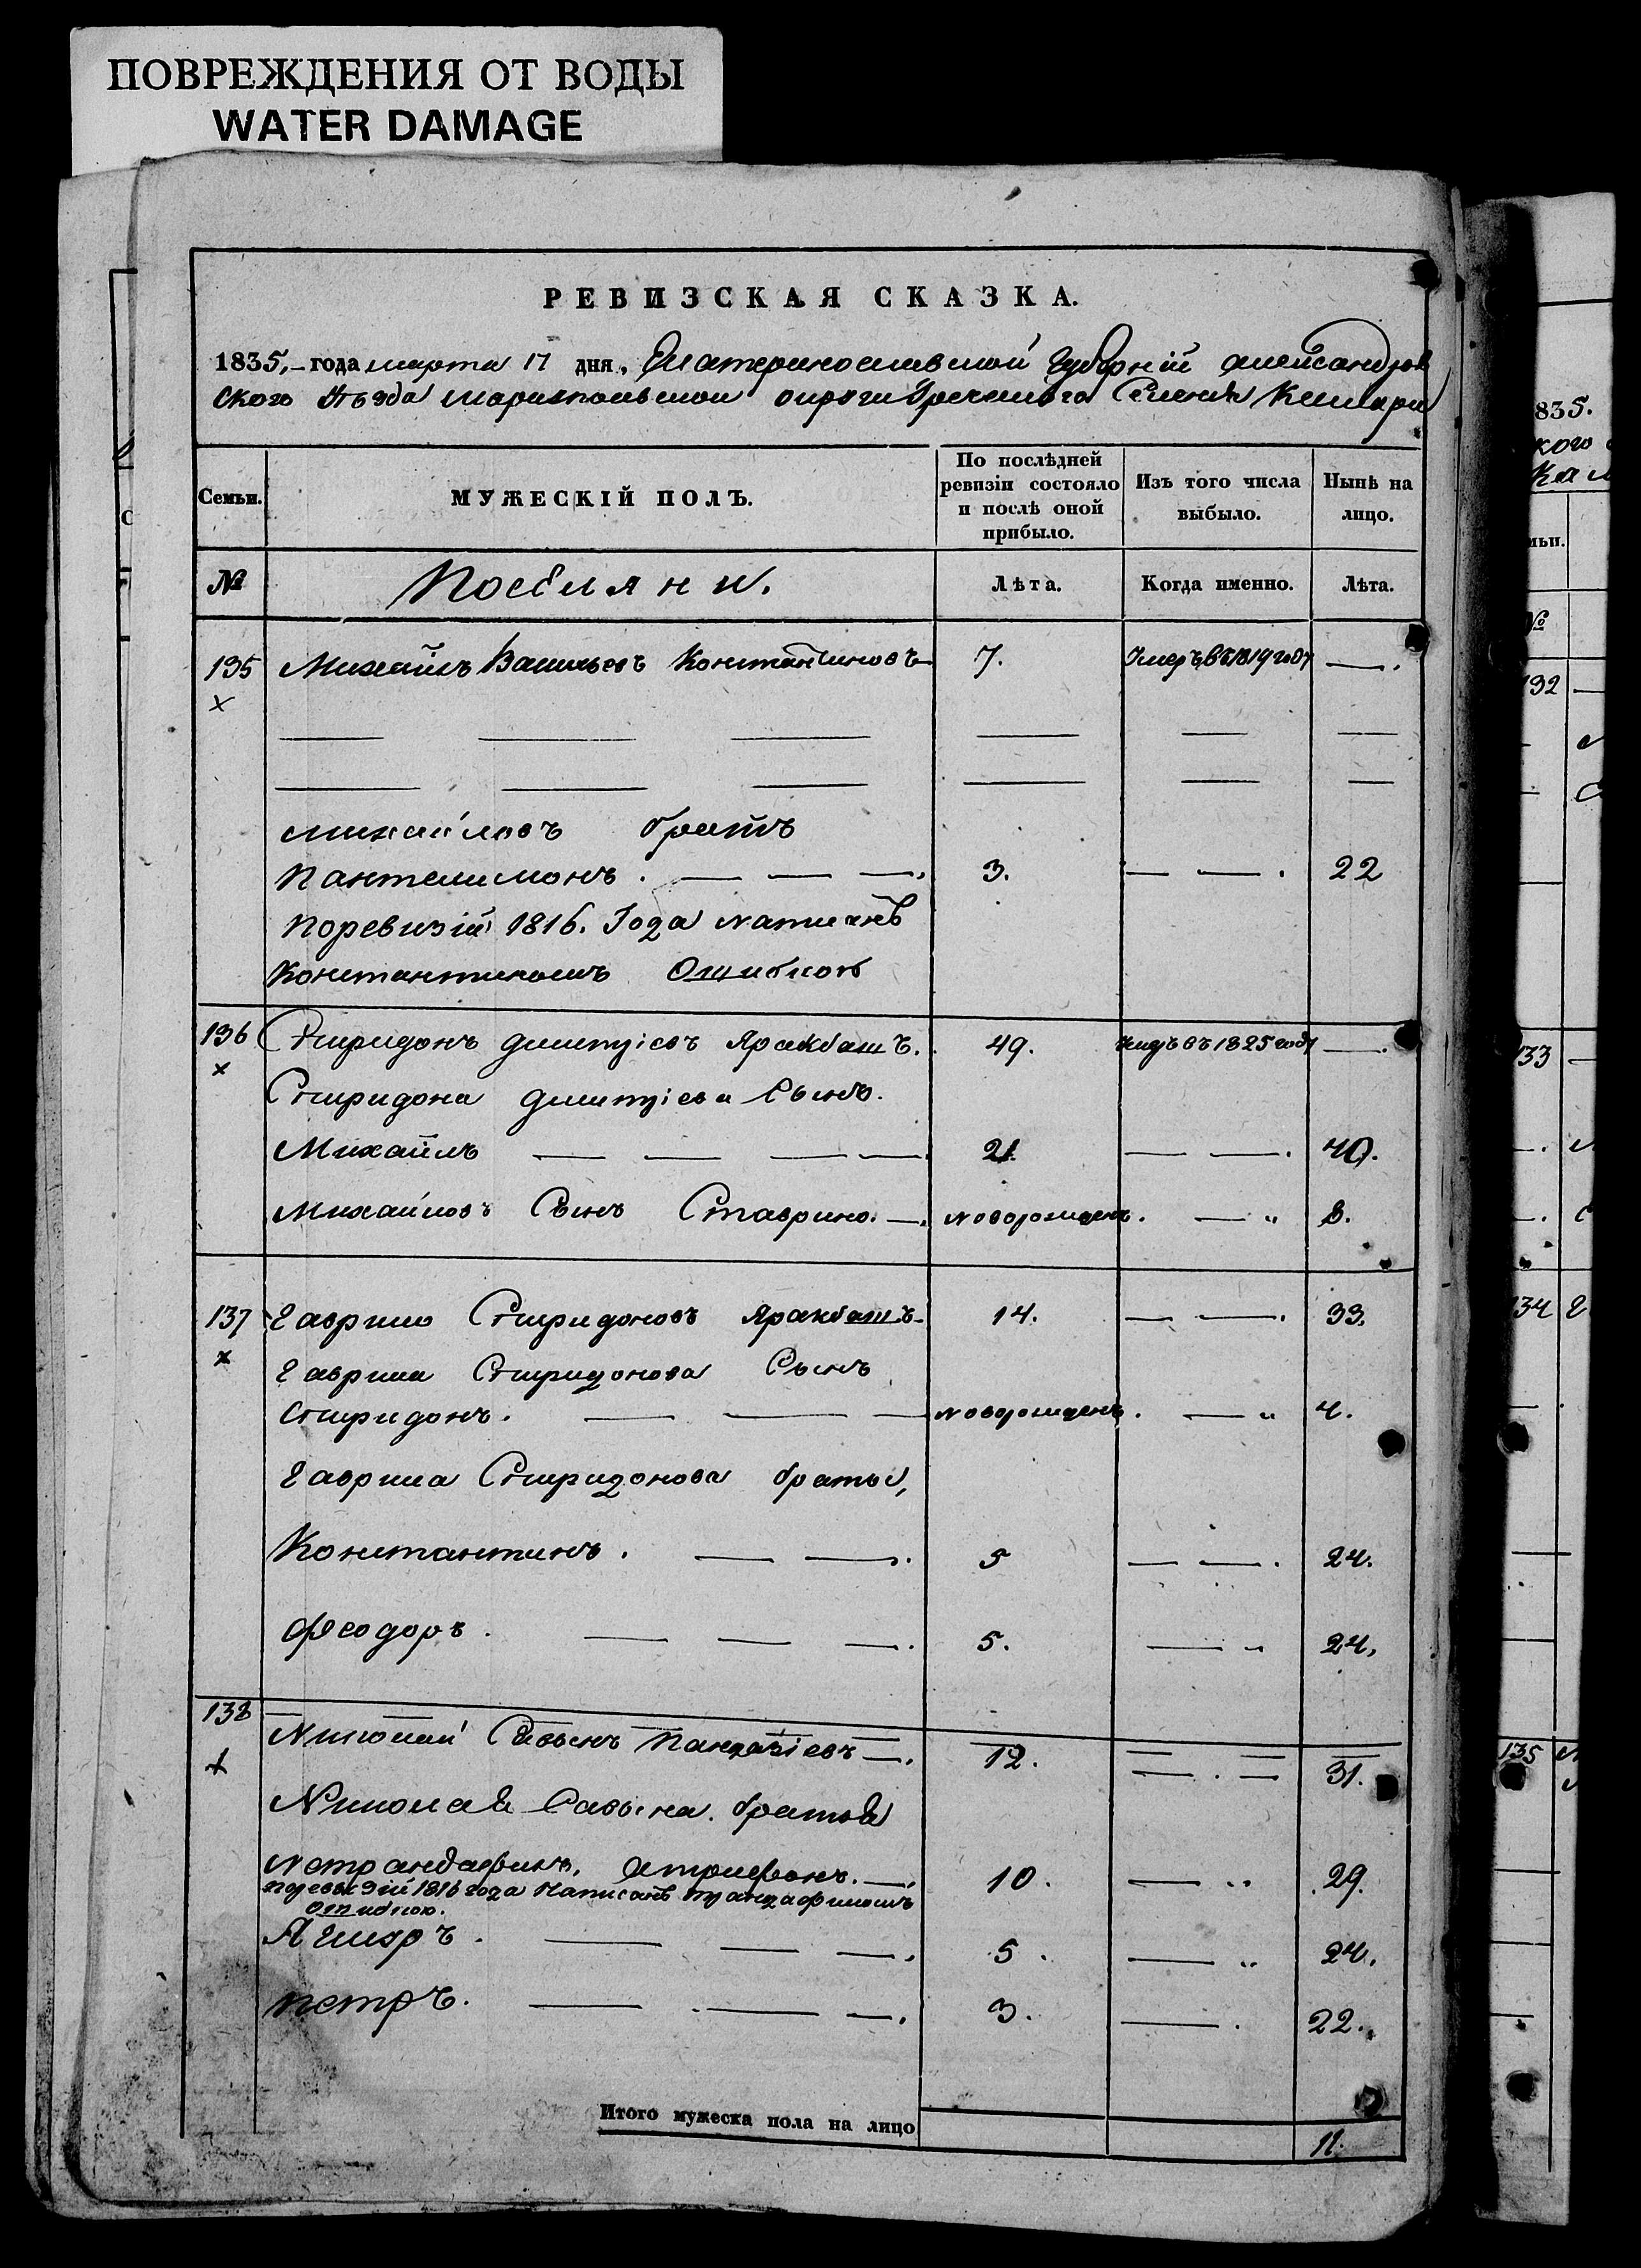 ПОВРЕЖДЕНИЯ ОТ ВОДЫ
WATER DAMAGE
РЕВИЗСКАЯ СКАЗКА.
1835,– года марта 17 дня, Екатеринославской Губерній Александров
ского Уѣзда Мариупольской округи Греческого Селенія
Семьи. МУЖЕСКІЙ ПОЛЪ. По послѣдней ревизіи состояло и послѣ оной прибыло. Изъ того числа выбыло. Нынѣ на лицо.
№ Посѣляни. Лѣта. Когда именно. Лѣта.
135 Михаилъ Васильевъ Константиновъ 7. Умеръ въ 1819 году —.
Михайловъ братъ
Пантелимонъ. — — —. 3. — —. 22
Поревизіи 1816. Года написанъ
Константиномъ Ошибкою
136 Спиридонъ Димитріевъ Яракбашъ. 49. Умеръ въ 1825 году —.
Спиридона Димитріева Сынъ.
Михаилъ — — — —. 21. — —. 40.
Михайловъ Сынъ Ставрино. —. новорожденъ. — „ 8.
137 Гаврило Спиридоновъ Яракбашъ 14. — —. 33.
Гаврила Спиридонова Сынъ
Спиридонъ. — — — новорожденъ. — „ 4.
Гаврила Спиридонова братья,
Константинъ. — —. 5 — —. 24.
Феодоръ. — — —. 5. — „ 24.
138 Николай Савинъ Пандазіевъ —. 12. — . — 31.
Николая Савина. братья
Атрифонъ. —. 10. — „ 29.
поревизій 1816 года написанъ трандафиломъ
ошибкою.
— — —. 5. — „ 24.
петръ. — . — —. 3. —. 22.
Итого мужеска пола на лицо 11.
835.
кого
№
132
133
134
135